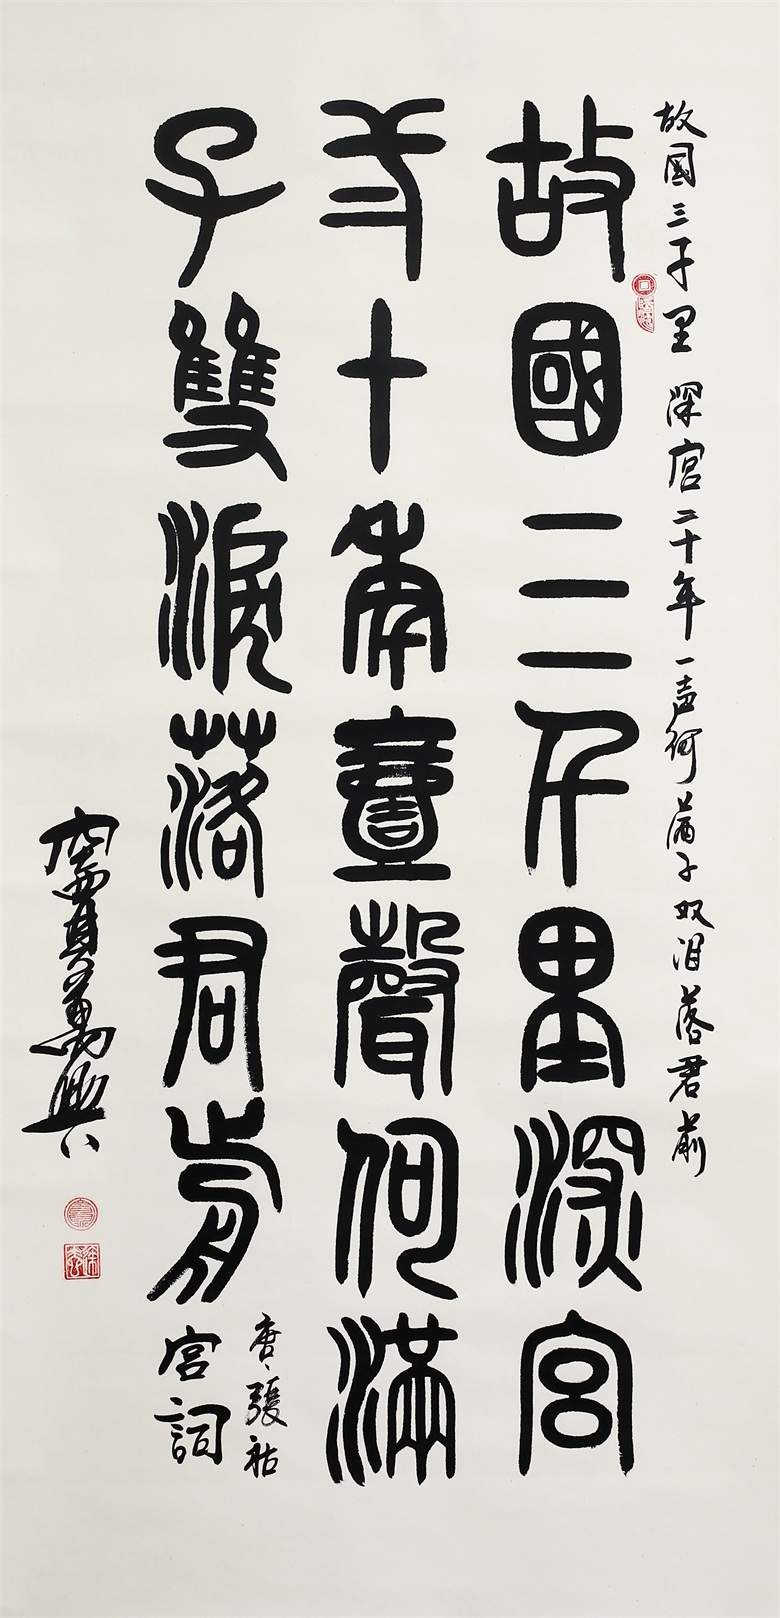 故國三千里 深宫二十年 一声何满子双泪落君前
故國三千里深宮
弍十年壹聲何滿
子雙淚落君前
唐、張祜
宫詞